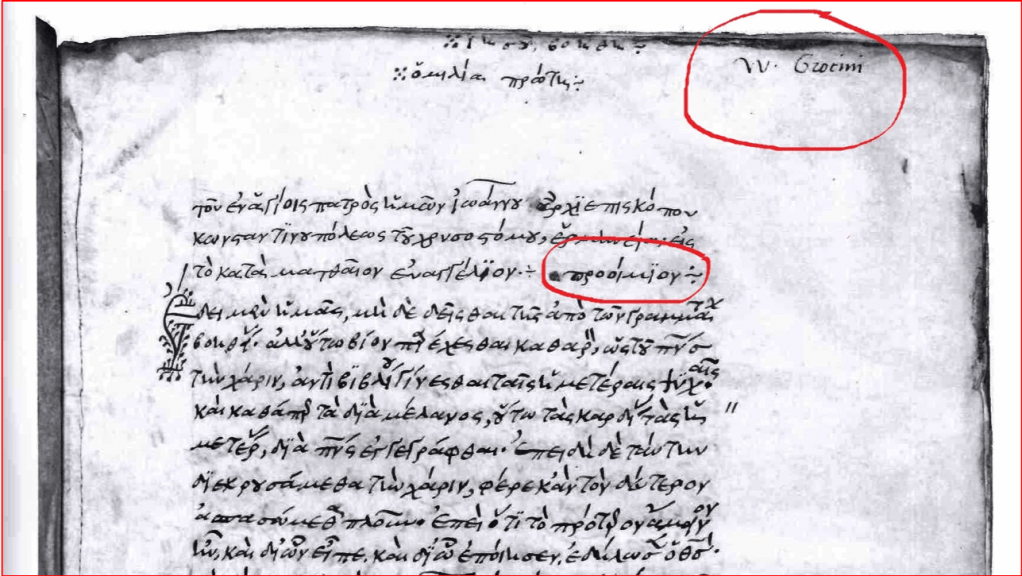 ἰησοῦ βοήθει:
W. Grocini
ὁμιλία πρώτη:
τοῦ ἐν ἁγίοις πατρὸς ἡμῶν ἰωάννου ἀρχϊεπισκόπου
κωνσταντϊνουπόλεως τοῦ χρυσοστόμου, ἑρμηνεία εἰς
τὸ κατὰ ματθαῖον εὐαγγέλϊον:÷ προοίμϊον:÷
Ἔδει μὲν ἡμᾶς, μὴ δὲ δεῖσθαι τῆς ἀπὸ τῶν γραμμάτων
βοηθείας· ἀλλ' οὕτω βίον παρέχεσθαι καθαρὸν, ὡς τοῦ πνς
τὴν χάριν, ἀντὶ βϊβλίων γίνεσθαι ταῖς ἡμετέραις ψυχαῖς·
καὶ καθάπερ ταῦτα δϊὰ μέλανος, οὕτω τὰς καρδίας τὰς ἡ
μετέρας, δϊὰ πνς ἐγγεγράφθαι· Ἐπειδὴ δὲ ταύτην
δϊεκρουσάμεθα τὴν χάριν, φέρε κἂν τὸν δεύτερον
ἀσπασώμεθα πλοῦν· ἐπεὶ ὅτι τὸ πρότερον ἄμεινον
ἦν, καὶ δι' ὧν εἶπε, καὶ δι' ὧν ἐποίησεν, ἐδήλωσεν ὁ θς·